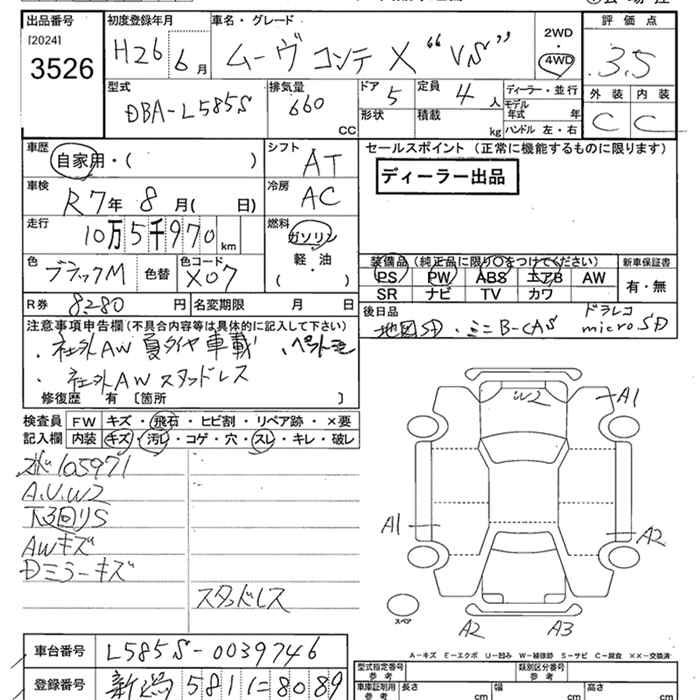 出品番号
[2024]
3526
初度登録年月
H26 6月
車名・グレード
ムーヴ コンテ X "VS"
2WD
・
4WD
評価点
3.5
型式
DBA-L585S
排気量
660
CC
ドア
5
形状
定員
4人
積載
kg
ディーラー・並行
モデル
年式 年
ハンドル 左・右
外装
C
内装
C
車歴
自家用・( )
シフト
AT
車検
R7年 8月( 日)
冷房
AC
走行
10万5千970km
燃料
ガソリン
軽・油
( )
色
ブラックM
色替
色コード
X07
R券
8,280円
名変期限 月 日
セールスポイント (正常に機能するものに限ります)
ディーラー出品
装備品(純正品に限り〇をつけてください)
PS PW ABS エアB AW
SR ナビ TV カワ
新車保証書
有・無
後日品
地図SD・ミニB-CAS
ドラレコ
microSD
注意事項申告欄(不具合内容等は具体的に記入して下さい)
・社外AW 夏タイヤ車載
・社外AW スタッドレス
修復歴 有〔箇所 〕
検査員
記入欄
FW キズ・飛石・ヒビ割・リペア跡・×要
内装 キズ・汚レ・コゲ・穴・スレ・キレ・破レ
105971
A.U.W2
下回りS
AWキズ
Dミラーキズ
スタッドレス
W2
A1
A1
A2
スペア
A2
A3
A-キズ E-エクボ U-凹み W-補修跡 S-サビ C-腐食 XX-交換済
車台番号
L585S-0039746
登録番号
新潟 581 に 8089
型式指定番号
参考
類別区分番号
参考
車庫証明用
参考
長さ
cm
幅
cm
高さ
cm